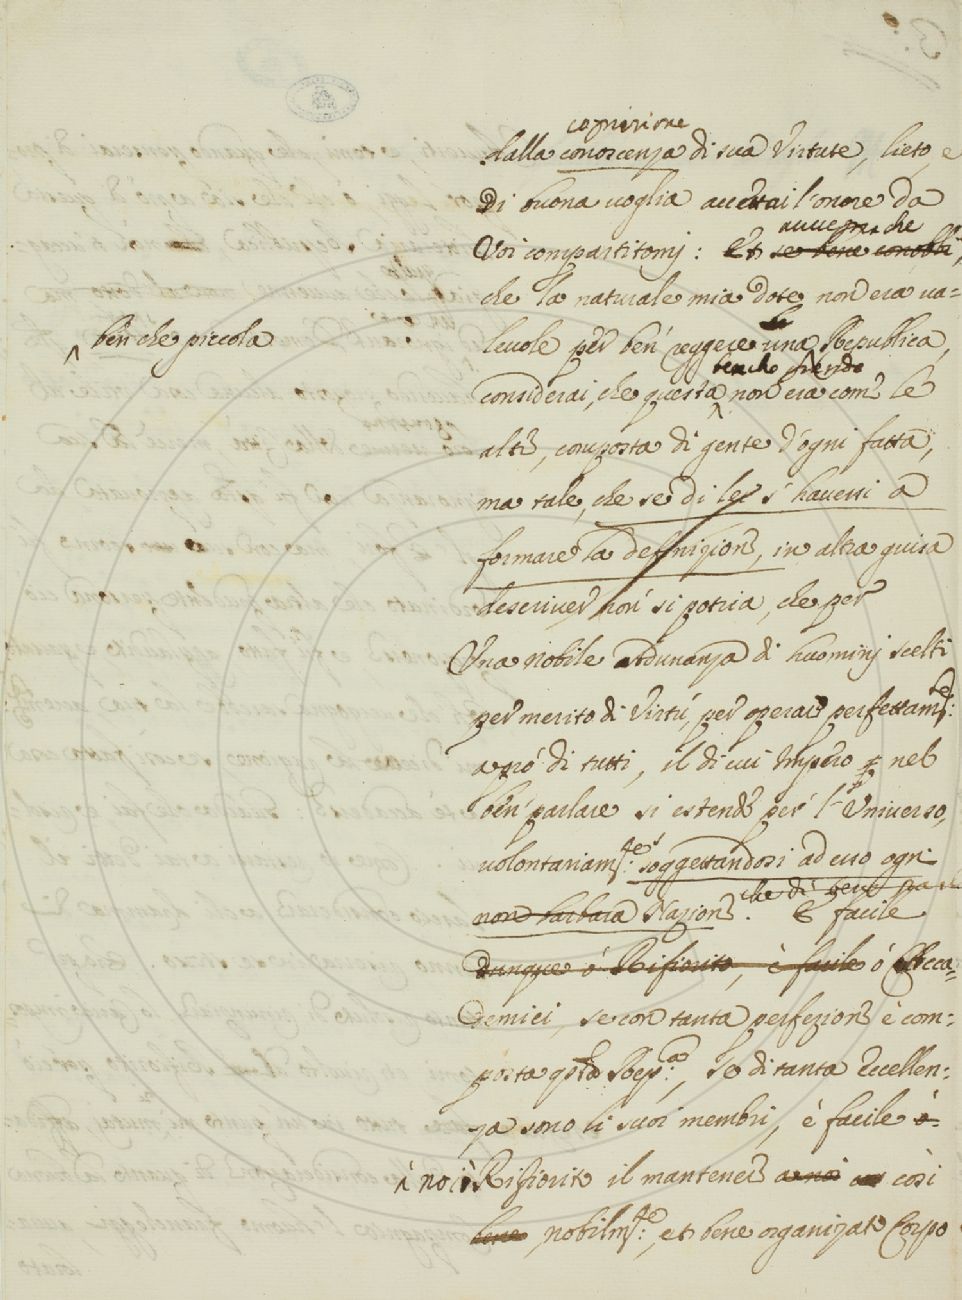 cognizione
dalla conoscenza di sua Virtute, lieto, e
Di buona voglia accettai l'onore da
auuenga che
Voi compartitomj: Et se bene conobbi,
che la naturale mia dote non era ua=
leuole per ben reggere una Republica,
ben che piccola
benche
considerai, che questa non era com le
altr, composta di gente d'ogni fatta,
ma tale, che se di lej s'hauessi a
formare la definizion, in altra guisa
descriuer non si potria, che per
Vna nobile adunanza di huominj scelti
per merito di Virtú, per operare perfettamte:
a pró di tutti, il di cui Impero nel
ben parlare si estende per l'Vniuerso,
volontariamte: soggettandosi ad esso ogni
non barbara Nazion. che di
E facile
Dunque ó Rifiorito, è facile ó Acca=
demici, se con tanta perfezion è com=
posta qsta Repca:, Se di tanta Eccellen=
za sono li suoi membri, è facile ó
à noi Rifiorito il mantener a noi così
bene nobilmte:, et bene organizato Corpo